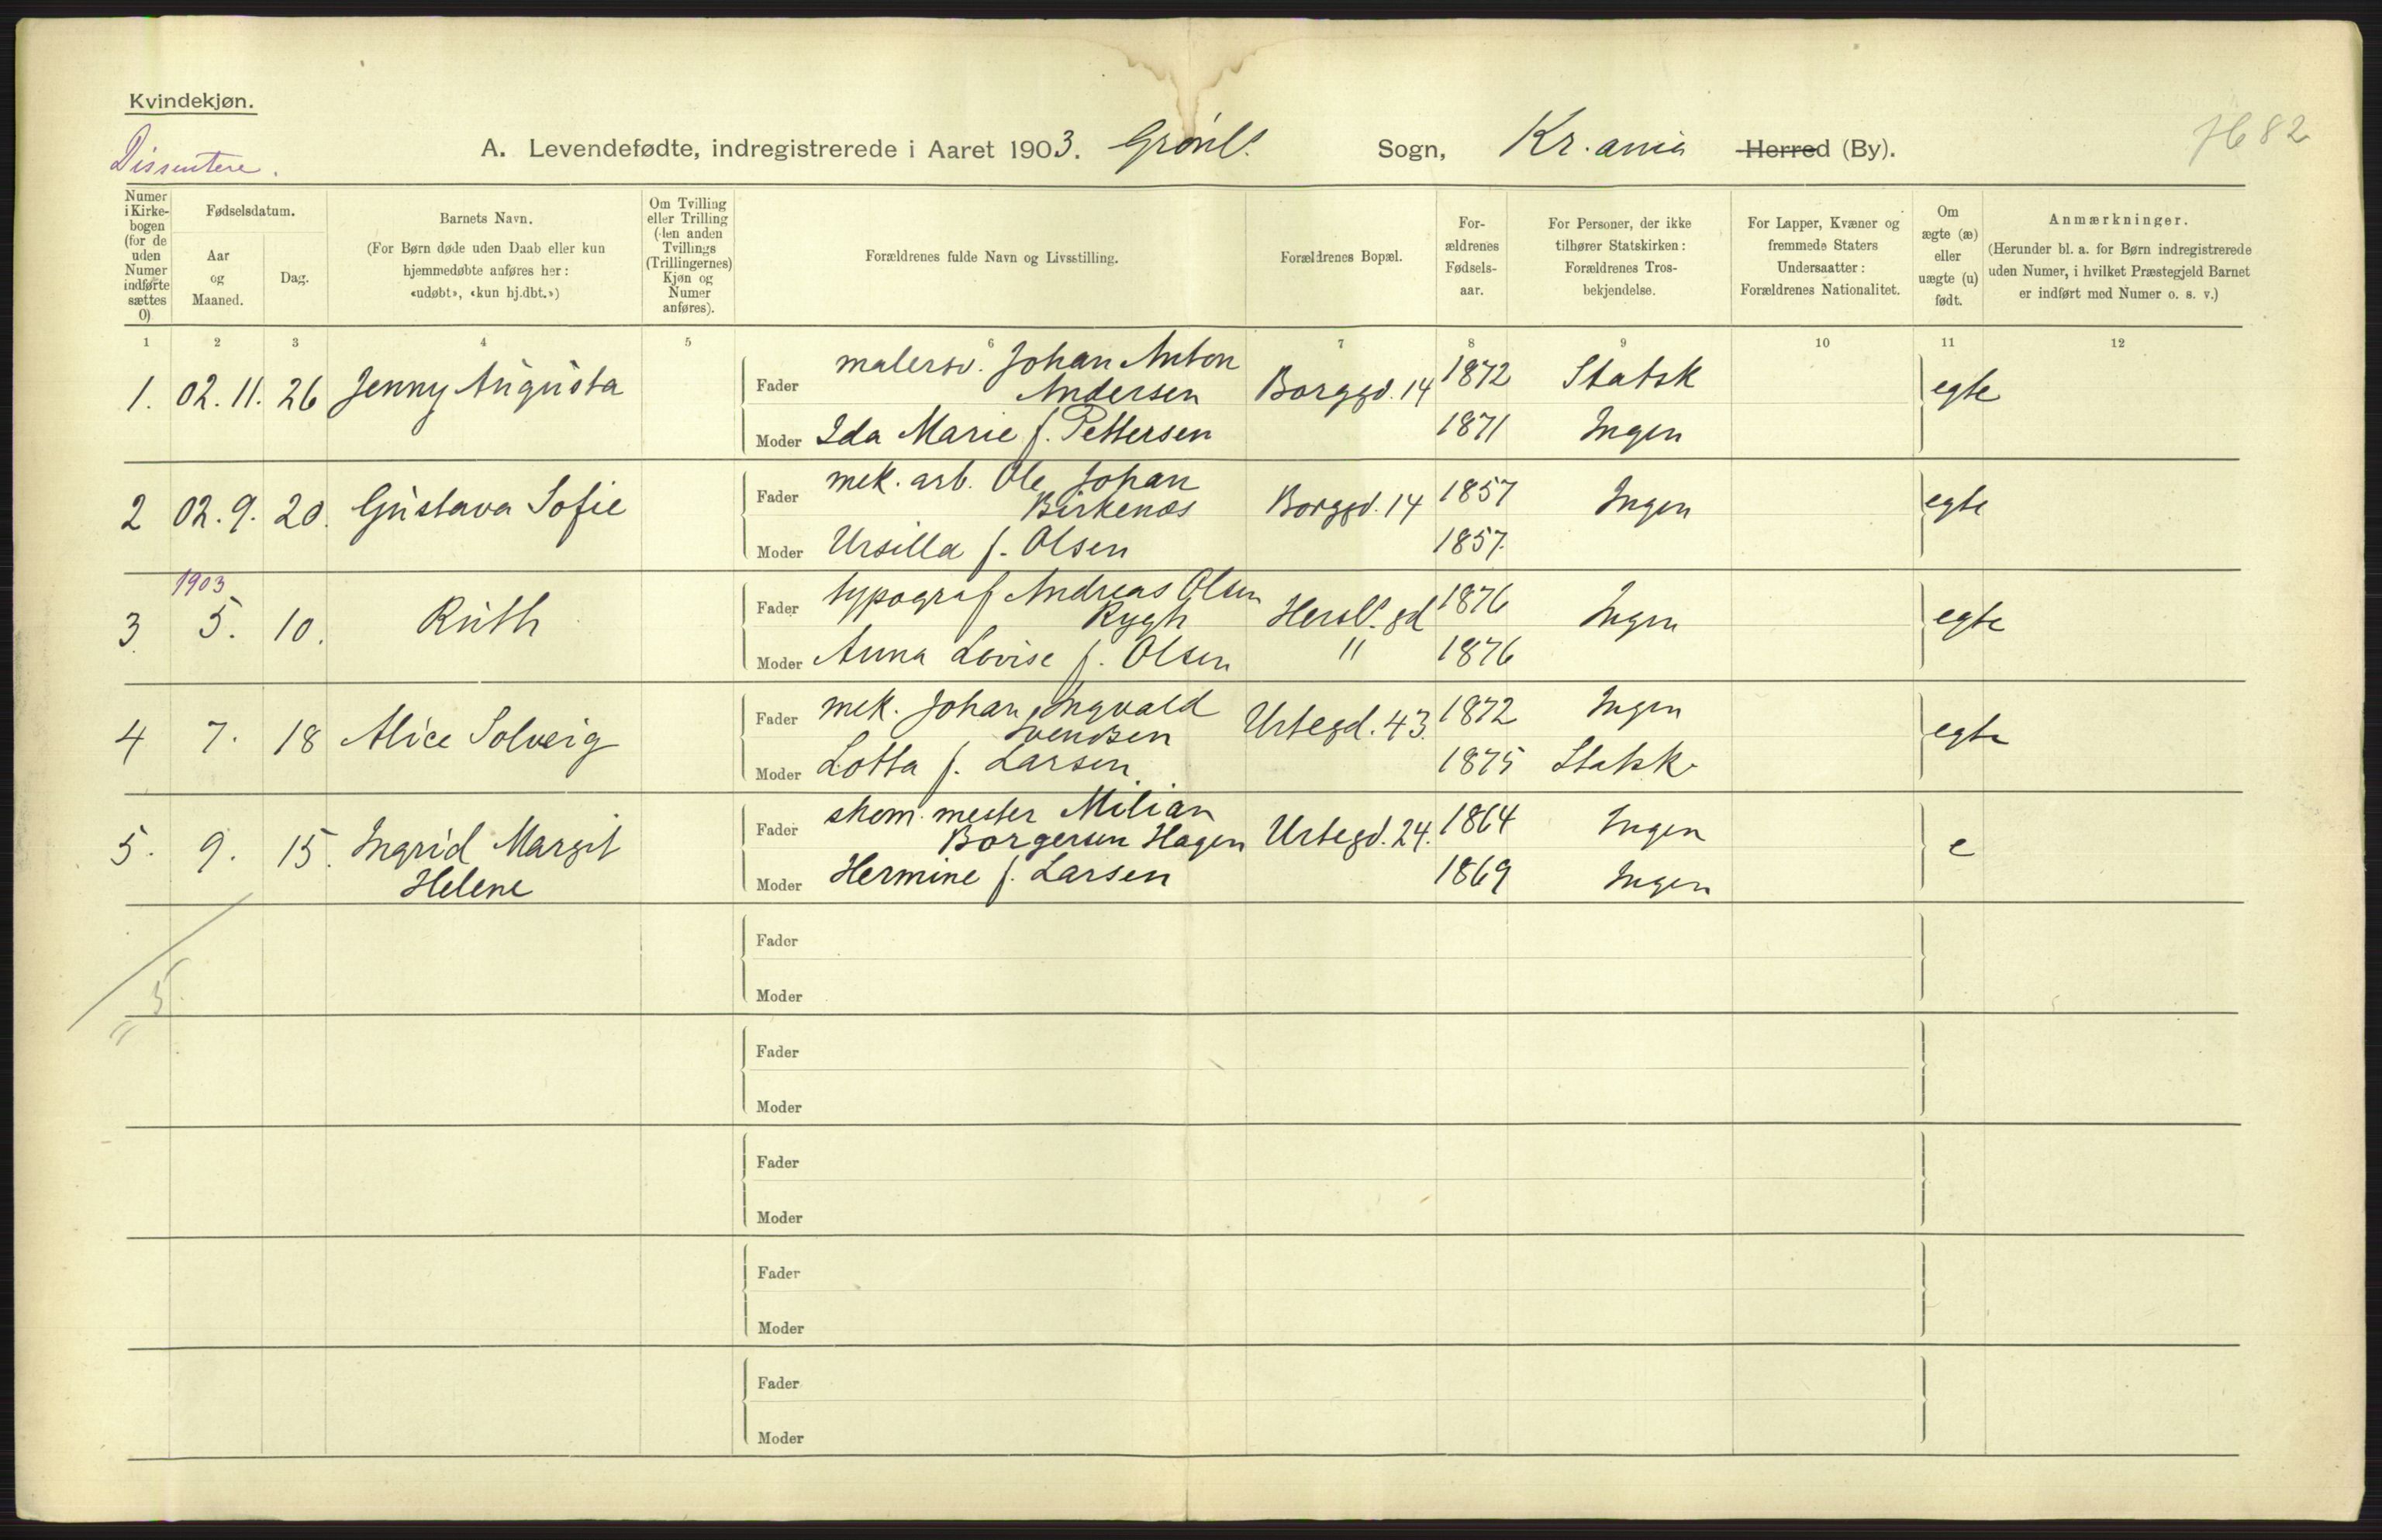 Kvindekjøn.
Dissentere.
A. Levendefødte, indregistrerede i Aaret 1903. Grønl. Sogn, Kr.ania Herred (By).
Numer i Kirke-bogen (for de uden Numer indførte sættes 0)
Fødselsdatum.
Aar og Maaned.
Dag.
Barnets Navn.
(For Børn døde uden Daab eller kun hjemmedøbte anføres her: «udøbt», «kun hj.dbt.»)
Om Tvilling eller Trilling (den anden Tvillings (Trillingernes) Kjøn og Numer anføres).
Forældrenes fulde Navn og Livsstilling.
Forældrenes Bopæl.
For-ældrenes Fødsels-aar.
For Personer, der ikke tilhører Statskirken: Forældrenes Tros-bekjendelse.
For Lapper, Kvæner og fremmede Staters Undersaatter: Forældrenes Nationalitet.
Om ægte (æ) eller uægte (u) født.
Anmærkninger.
(Herunder bl. a. for Børn indregistrerede uden Numer, i hvilket Præstegjeld Barnet er indført med Numer o. s. v.)
1 2 3 4 5 6 7 8 9 10 11 12
1. 02.11. 26 Jenny Augusta Fader malersv. Johan Anton Andersen Borggd. 14 1872 Statsk egte
Moder Ida Marie f. Pettersen 1871 Ingen
2 02.9. 20. Gustava Sofie Fader mek. arb. Ole Johan Birkenæs Borggd. 14 1857 Ingen egte
Moder Ursilla f. Olsen 1857.
1903
3 5. 10. Ruth Fader typograf Andreas Olsen Rygh Hersl. gd 1876 Ingen egte
Moder Anna Lovise f. Olsen " 1876
4 7. 18 Alice Solveig Fader mek. Johan Ingvald Svendsen Urtegd. 43. 1872 Ingen egte
Moder Lotta f. Larsen. 1875 Statsk.
5. 9. 15. Ingrid Margit Helene Fader skom. mester Milian Borgersen Hagen Urtegd. 24. 1864 Ingen e
Moder Hermine f. Larsen 1869 Ingen
5.
Fader
Moder
Fader
Moder
Fader
Moder
Fader
Moder
Fader
Moder